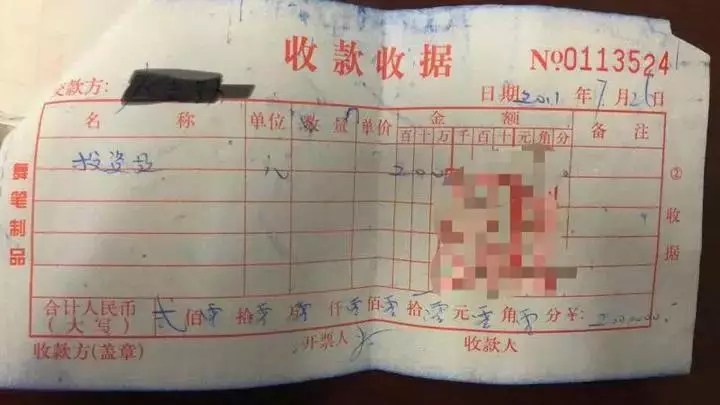 收款收据 №0113524
交款方:
日期 2011 年 7 月 26 日
名 称 单位 数量 单价 金 额 备 注
百 十 万 千 百 十 元 角 分
投资款
舞笔制品
② 收据
合计人民币(大写) 贰 佰 零 拾 零 万 零 仟 零 佰 零 拾 零 元 零 角 零 分 ¥:
收款方(盖章) 开票人 收款人